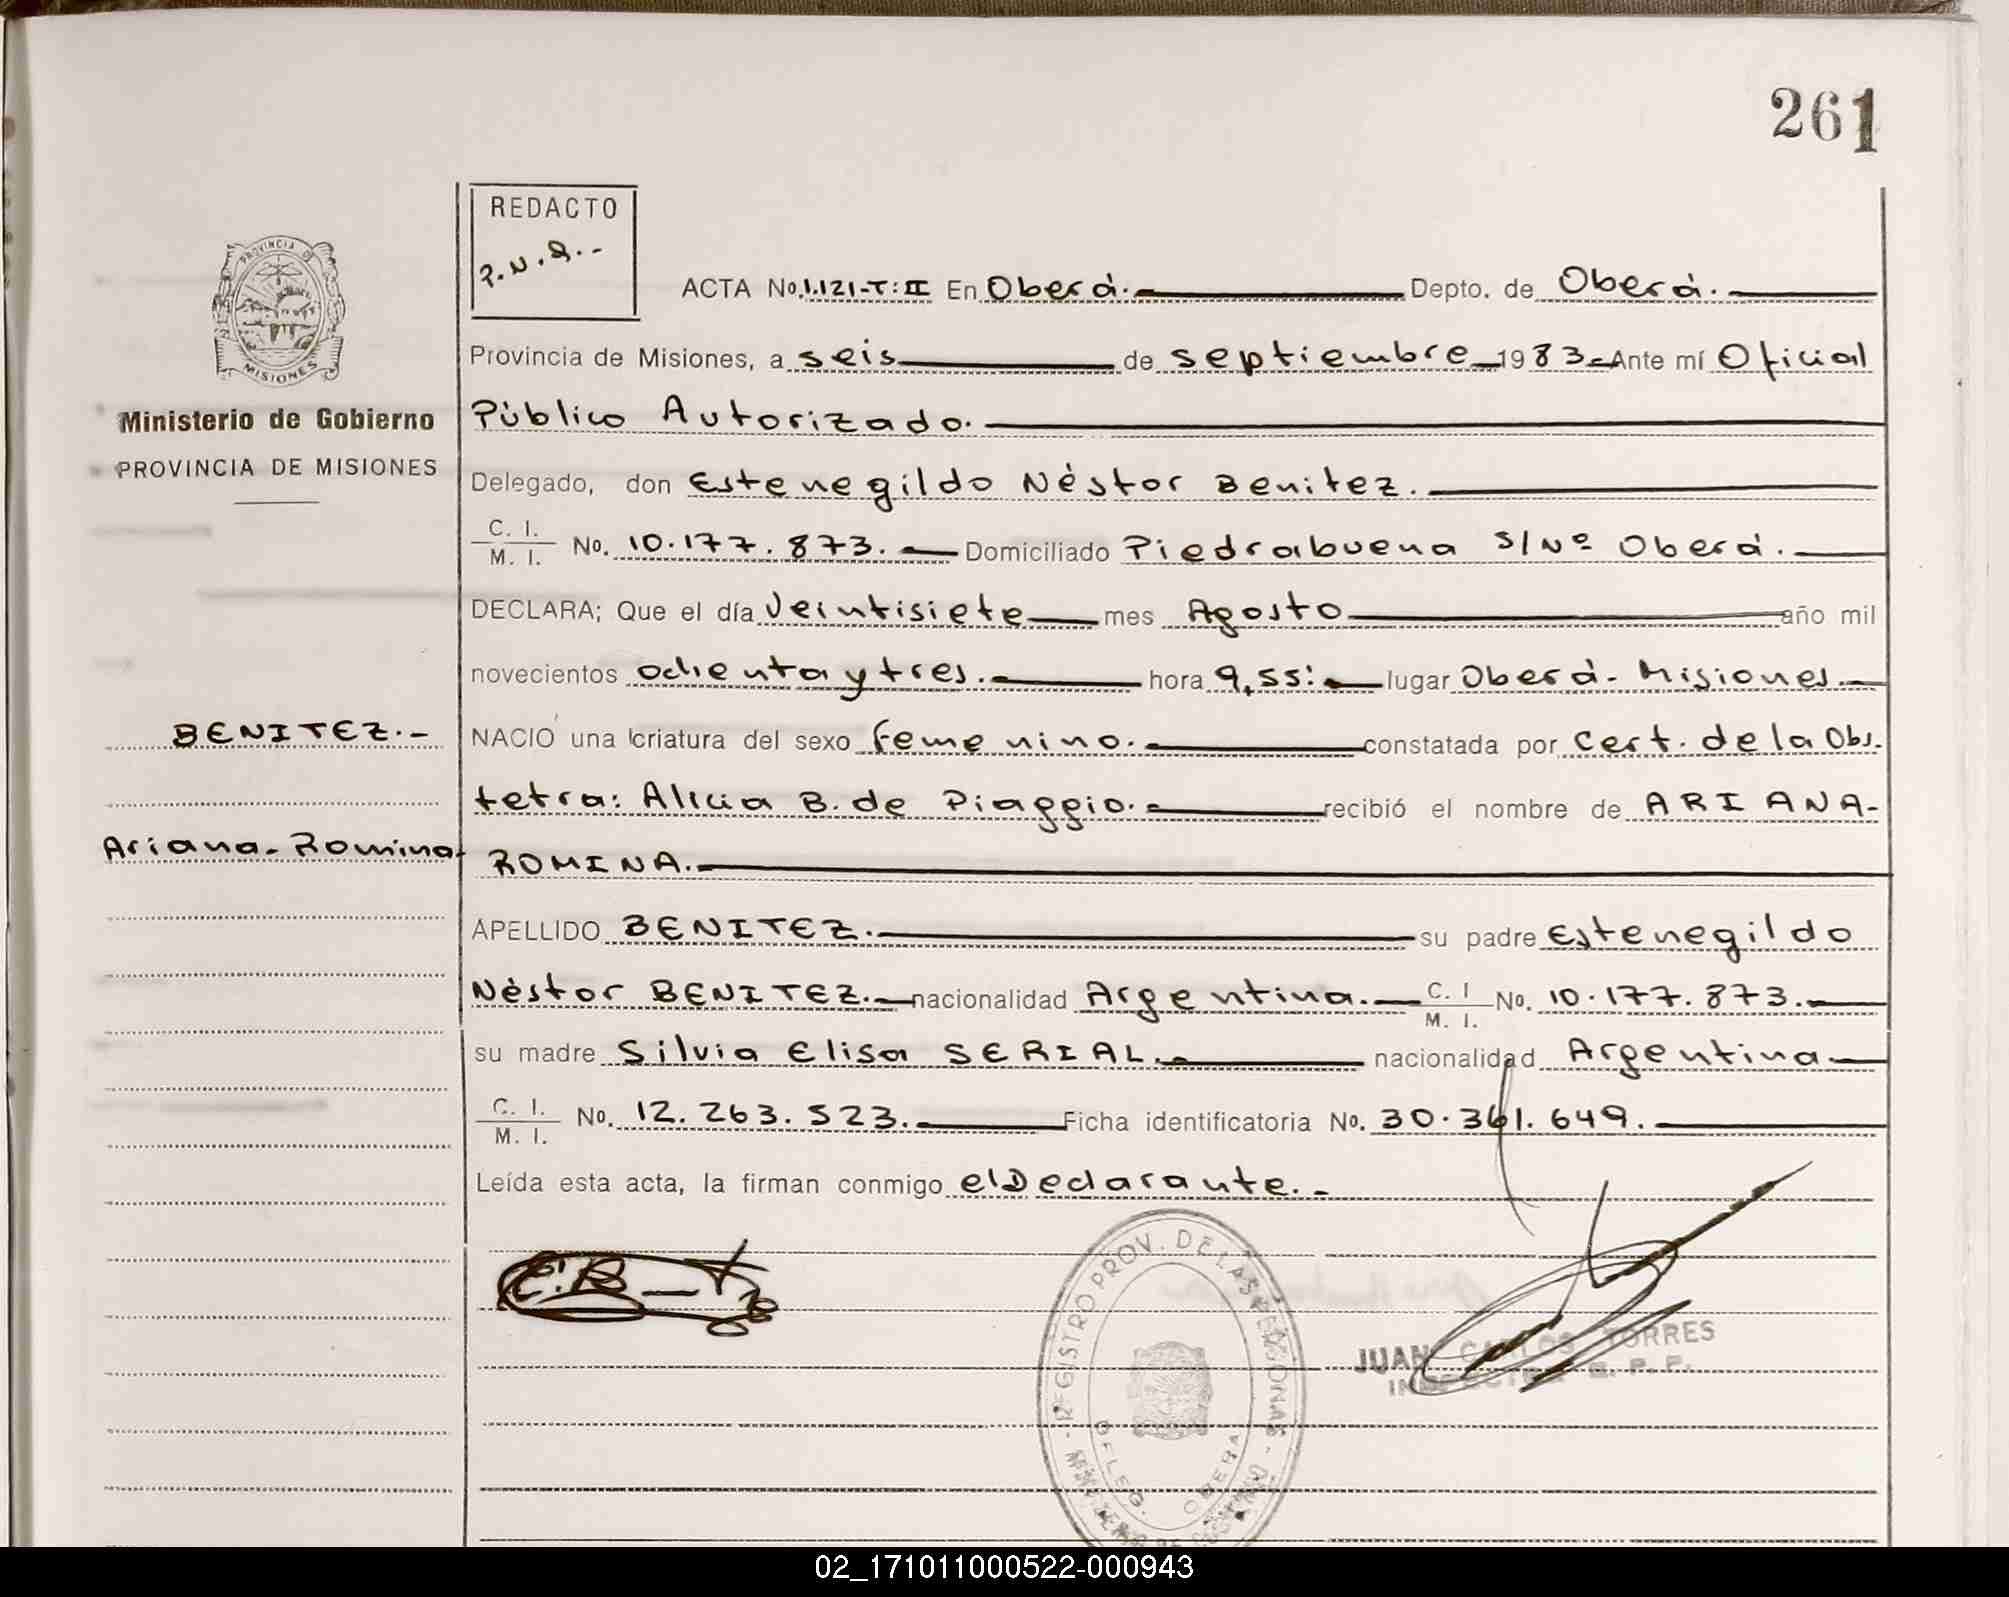 261
REDACTO
PROVINCIA DE
MISIONES
ACTA No. 1.121-T:II En Oberá. Depto. de Oberá.
Provincia de Misiones, a seis de septiembre 1983 Ante mí Oficial
Ministerio de Gobierno
Público Autorizado.
PROVINCIA DE MISIONES
Delegado, don Estenegildo Néstor Benitez.
C. I.
M. I. No. 10.177.873. Domiciliado Piedrabuena S/Nº Oberá.
DECLARA; Que el día Veintisiete mes Agosto año mil
novecientos ochenta y tres. hora 9,55: lugar Oberá- Misiones
BENITEZ.-
NACIO una criatura del sexo femenino. constatada por Cert. de la Obs.
tetra: Alicia B. de Piaggio. recibió el nombre de ARIANA-
Ariana- Romina
ROMINA.
APELLIDO BENITEZ. su padre Estenegildo
Néstor BENITEZ. nacionalidad Argentina. C. I M. I. No. 10.177.873.
su madre Silvia Elisa SERIAL. nacionalidad Argentina
C. I. M. I. No. 12.263.523. Ficha identificatoria No. 30.361.649.
Leída esta acta, la firman conmigo el Declarante.-
REGISTRO PROV. DE LAS PERSONAS
DELEG. OBERA
JUAN CARLOS TORRES
02_171011000522-000943